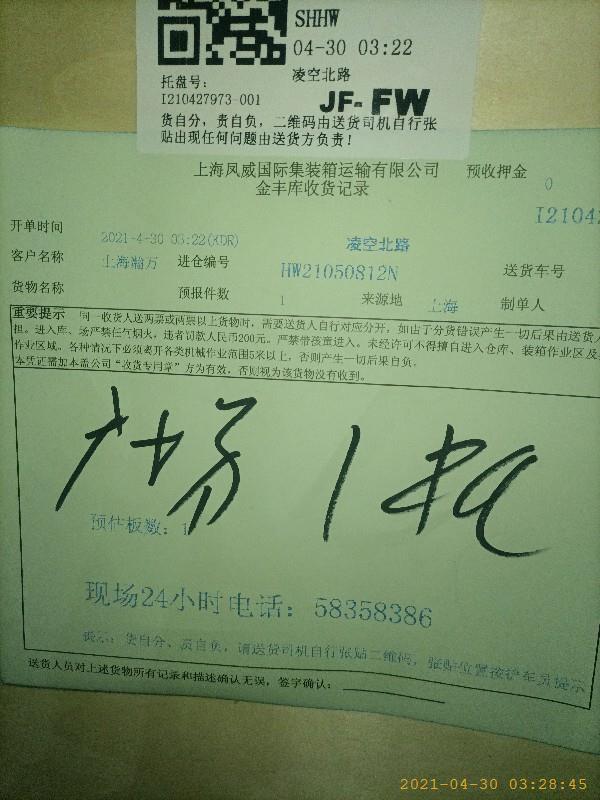 SHHW
04-30 03:22
凌空北路
托盘号:
I210427973-001
JF-FW
货自分，责自负，二维码由送货司机自行张
贴出现任何问题由送货方负责！
上海凤威国际集装箱运输有限公司 预收押金 0
金丰库收货记录
I2104
开单时间 2021-4-30 03:22(KDR) 凌空北路
客户名称 上海瀚万 进仓编号 HW21050812N 送货车号
货物名称 预报件数 1 来源地 上海 制单人
重要提示 同一收货人送两票或两票以上货物时，需要送货人自行对应分开，如由于分货错误产生一切后果由送货人
担。进入库、场严禁任何烟火，违者罚款人民币200元。严禁带孩童进入。未经许可不得擅自进入仓库、装箱作业区及
作业区域。各种情况下必须离开各类机械作业范围5米以上，否则产生一切后果自负。
本凭证需加本盖公司“收货专用章”方为有效，否则视为该货物没有收到。
1
预估板数：1
现场24小时电话：58358386
提示：货自分、责自负，请送货司机自行张贴二维码，张贴位置按铲车员提示
送货人员对上述货物所有记录和描述确认无误，签字确认：
2021-04-30 03:28:45